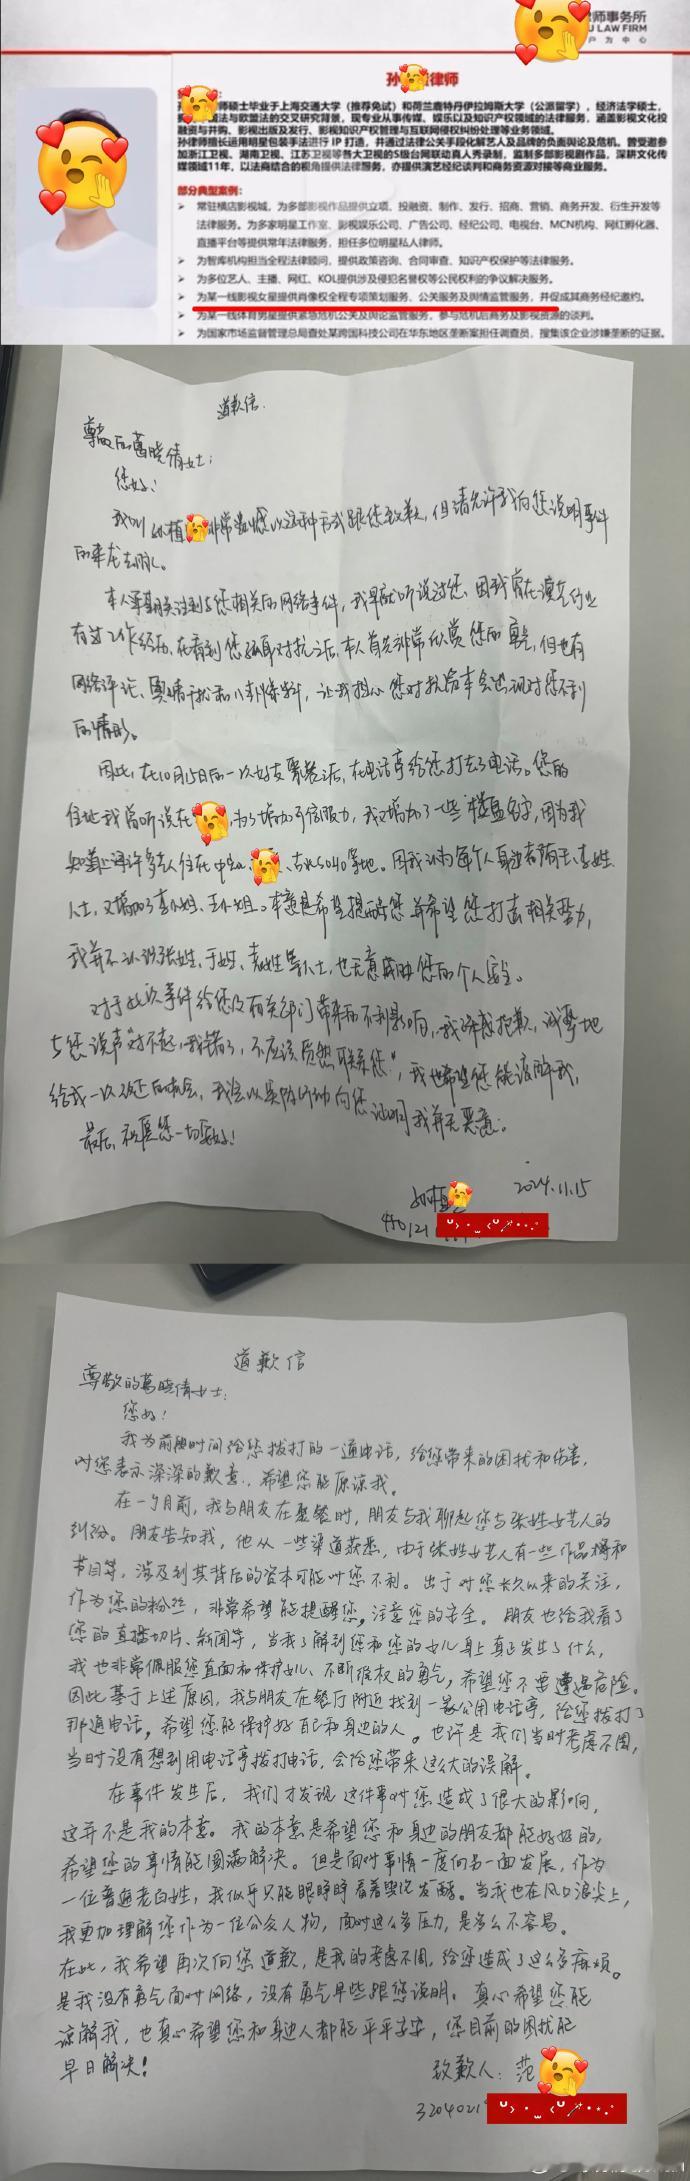 律师事务所
U LAW FIRM
户 为 中 心
孙 律师
孙 师硕士毕业于上海交通大学（推荐免试）和荷兰鹿特丹伊拉姆斯大学（公派留学），经济法学硕士，
法与欧盟法的交叉研究背景，现专业从事传媒、娱乐以及知识产权领域的法律服务，涵盖影视文化投
融资与并购、影视出版及发行、影视知识产权管理与互联网侵权纠纷处理等业务领域。
孙律师擅长运用明星包装手法进行 IP 打造，并通过法律公关手段化解艺人及品牌的负面舆论及危机。曾受邀参
加浙江卫视、湖南卫视、江苏卫视等各大卫视的S级台网联动真人秀录制，监制多部影视剧作品，深耕文化传
媒领域11年，以法商结合的视角提供法律服务，亦提供演艺经纪谈判和商务资源对接等商业服务。
部分典型案例：
➢ 常驻横店影视城，为多部影视作品提供立项、投融资、制作、发行、招商、营销、商务开发、衍生开发等
法律服务。为多家明星工作室、影视娱乐公司、广告公司、经纪公司、电视台、MCN机构、网红孵化器、
直播平台等提供常年法律服务，担任多位明星私人律师。
➢ 为智库机构担当全程法律顾问，提供政策咨询、合同审查、知识产权保护等法律服务。
➢ 为多位艺人、主播、网红、KOL提供涉及侵犯名誉权等公民权利的争议解决服务。
➢ 为某一线影视女星提供肖像权全程专项策划服务、公关服务及舆情监管服务，并促成其商务经纪邀约。
➢ 为某一线体育男星提供紧急危机公关及舆论监管服务，参与危机后商务及影视资源的谈判。
➢ 为国家市场监督管理总局查处某跨国科技公司在华东地区垄断案担任调查员，搜集该企业涉嫌垄断的证据。
道歉信.
尊敬的葛晓倩女士：
您好！
我叫孙植 非常抱憾以这种方式跟您致歉，但请允许我向您说明事件
的来龙去脉。
本人早期关注到与您相关的网络事件，我早就听说过您，因我曾在演艺行业
有过工作经历，在看到您孤身对抗之后，本人首先非常欣赏您的勇气，但也有
网络评论、舆情干扰和八卦爆料，让我担心您对抗资本会出现对您不利
的情形。
因此，在10月15日后的一次好友聚餐之后，在电话亭给您打去了电话。您的
住址我曾听说在 ，为了增加可信服力，我又增加了一些"楼盘名字，因为我
知道上海许多艺人住在中 、 、 5040等地。因我认为每个人身边都有王、李姓
人士，又增加了李小姐、王小姐。本意是希望提醒您并希望您打击相关势力，
我并不认识张姓、于姓、袁姓等人士，也无意威胁您的个人安全。
对于此次事件给您及有关部门带来的不利影响，我深感抱歉，诚挚地
与您说声"对不起，我错了，不应该贸然联系您"，我也希望您能谅解我，
给我一次改过的机会，我会以实际行动向您证明我并无恶意。
最后，祝愿您一切安好！
孙植
2024.11.15
450121
道歉信
尊敬的葛晓倩女士：
您好！
我为前段时间给您拨打的一通电话，给您带来的困扰和伤害，
对您表示深深的歉意，希望您能原谅我。
在一个月前，我与朋友在聚餐时，朋友与我聊起您与张姓女艺人的
纠纷。朋友告知我，他从一些渠道获悉，由于张姓女艺人有一些作品播和
节目等，涉及到其背后的资本可能对您不利。出于对您长久以来的关注，
作为您的粉丝，非常希望能提醒您，注意您的安全。朋友也给我看了
您的直播切片、新闻等，当我了解到您和您的女儿身上真正发生了什么，
我也非常佩服您直面和保护女儿、不断维权的勇气，希望您不要遭遇危险。
因此基于上述原因，我与朋友在餐厅附近找到一家公用电话亭，给您拨打了
那通电话，希望您能保护好自己和身边的人。也许是我们当时考虑不周，
当时没有想到用电话亭拨打电话，会给您带来这么大的误解。
在事件发生后，我们才发现这件事对您造成了很大的影响，
这并不是我的本意。我的本意是希望您和身边的朋友都能好好的，
希望您的事情能圆满解决。但是面对事情一度向另一面发展，作为
一位普通老百姓，我似乎只能眼睁睁看着舆论发酵。当我也在风口浪尖上，
我更加理解您作为一位公众人物，面对这么多压力，是多么不容易。
在此，我希望再次向您道歉，是我的考虑不周，给您造成了这么多麻烦。
是我没有勇气面对网络，没有勇气早些跟您说明。真心希望您能
谅解我，也真心希望您和身边人都能平平安安，您目前的困扰能
早日解决！
致歉人：范
3204021